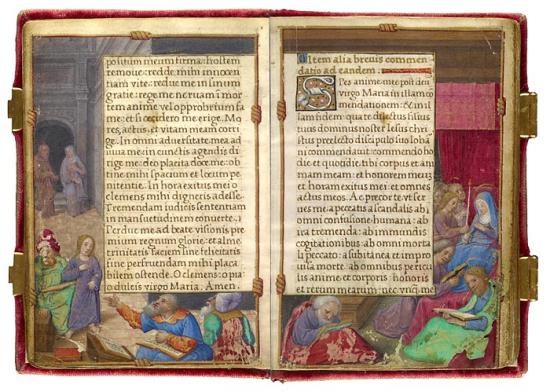 positum meum firma: hostem
remove: redde mihi innocen
tiam vite: reduc me in sinum
gratie: rege me ne ruam i mor
tem anime vel opprobrium fa
me: et si cecidero me erige. Mo
res, actus, et vitam meam corri
ge. In omni adversitate mea ad
iuva me: in cunctis agendis di
rige me: deo placita doce me: ob
tine mihi spacium et locum pe
nitentie. In hora exitus mei o
clemens mihi digneris adesse.
Tremendam iudicis sententiam
in mansuetudinem converte.
Perduc me ad beate visionis pre
mium regnum glorie: et alme
trinitatis faciem sine felicitatis
fine perfruendam mihi placa
bilem ostende. O clemens: o pia
o dulcis virgo Maria. Amen.
Item alia brevis commen
datio ad eandem.
Spes anime post deum
virgo Maria in illam co
mendationem: et in il
lam fidem: qua te dilectus filius
tuus dominus noster Iesus chris
tus predilecto discipulo suo Ioha
ni commendavit: commendo ho
die et quotidie tibi corpus et ani
mam meam: et honorem meum
et horam exitus mei: et omnes
actus meos. Ac precor te ut ser
ves me: a peccatis a scandalis ab
omni confusione humana: ab
ira tremenda: ab immundis
cogitationibus: ab omni morta
li peccato: a subitanea et impro
visa morte: ab omnibus pericu
lis anime et corporis: honoris
et rerum mearum: nec unquam me